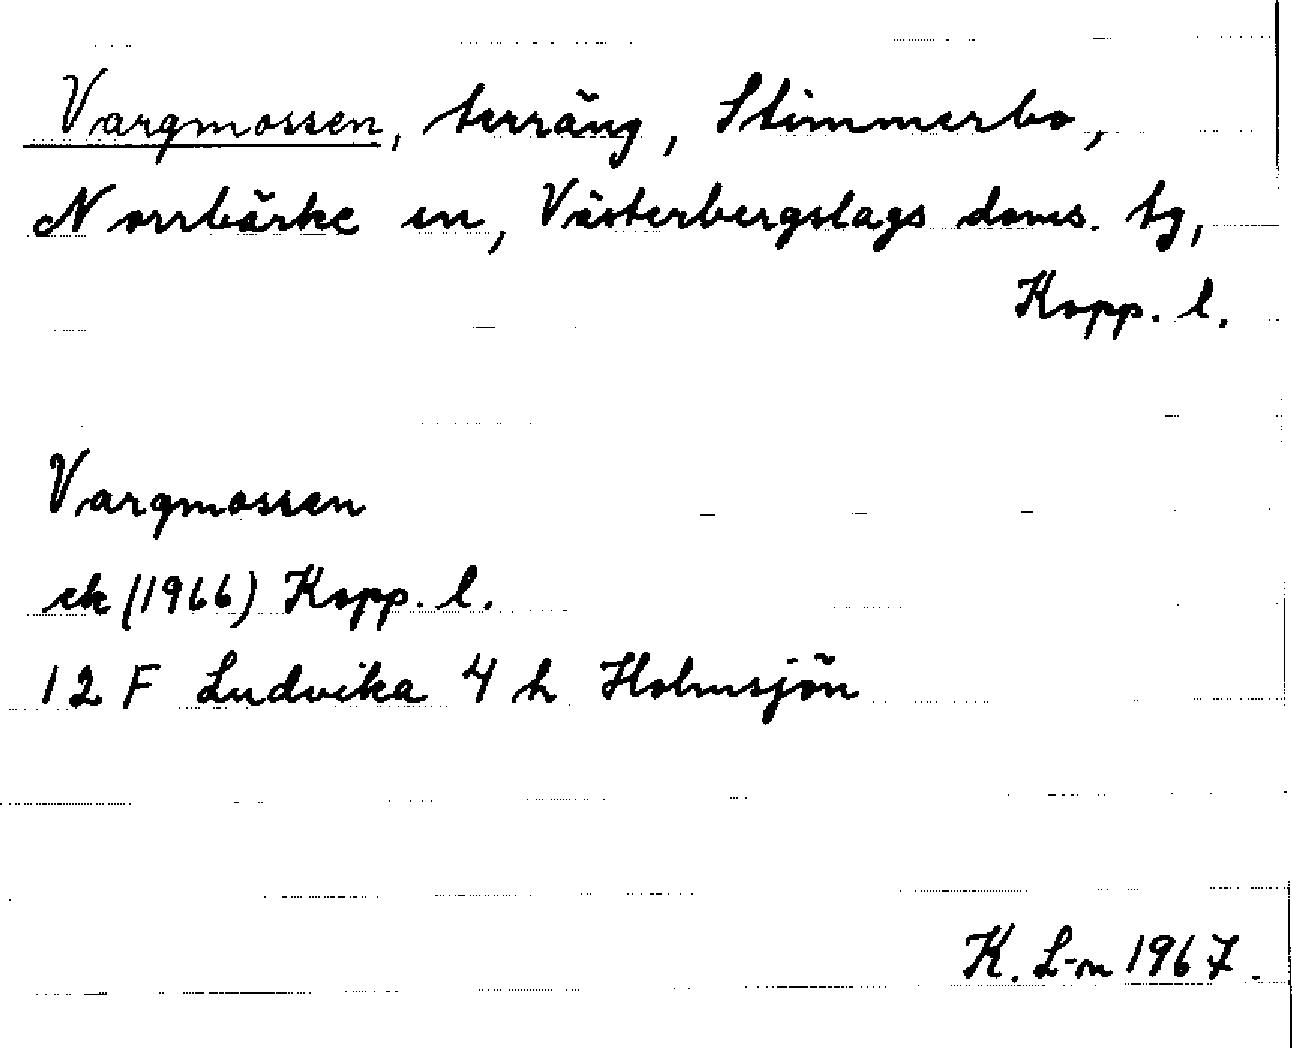 Vargmossen, terräng, Stimmerbo,
Norrbärke sn, Västerbergslags doms. tg,
Kopp. l.
Vargmossen
ek (1966) Kopp. l.
12 F Ludvika 4 h Holmsjön
K. L-m 1967.